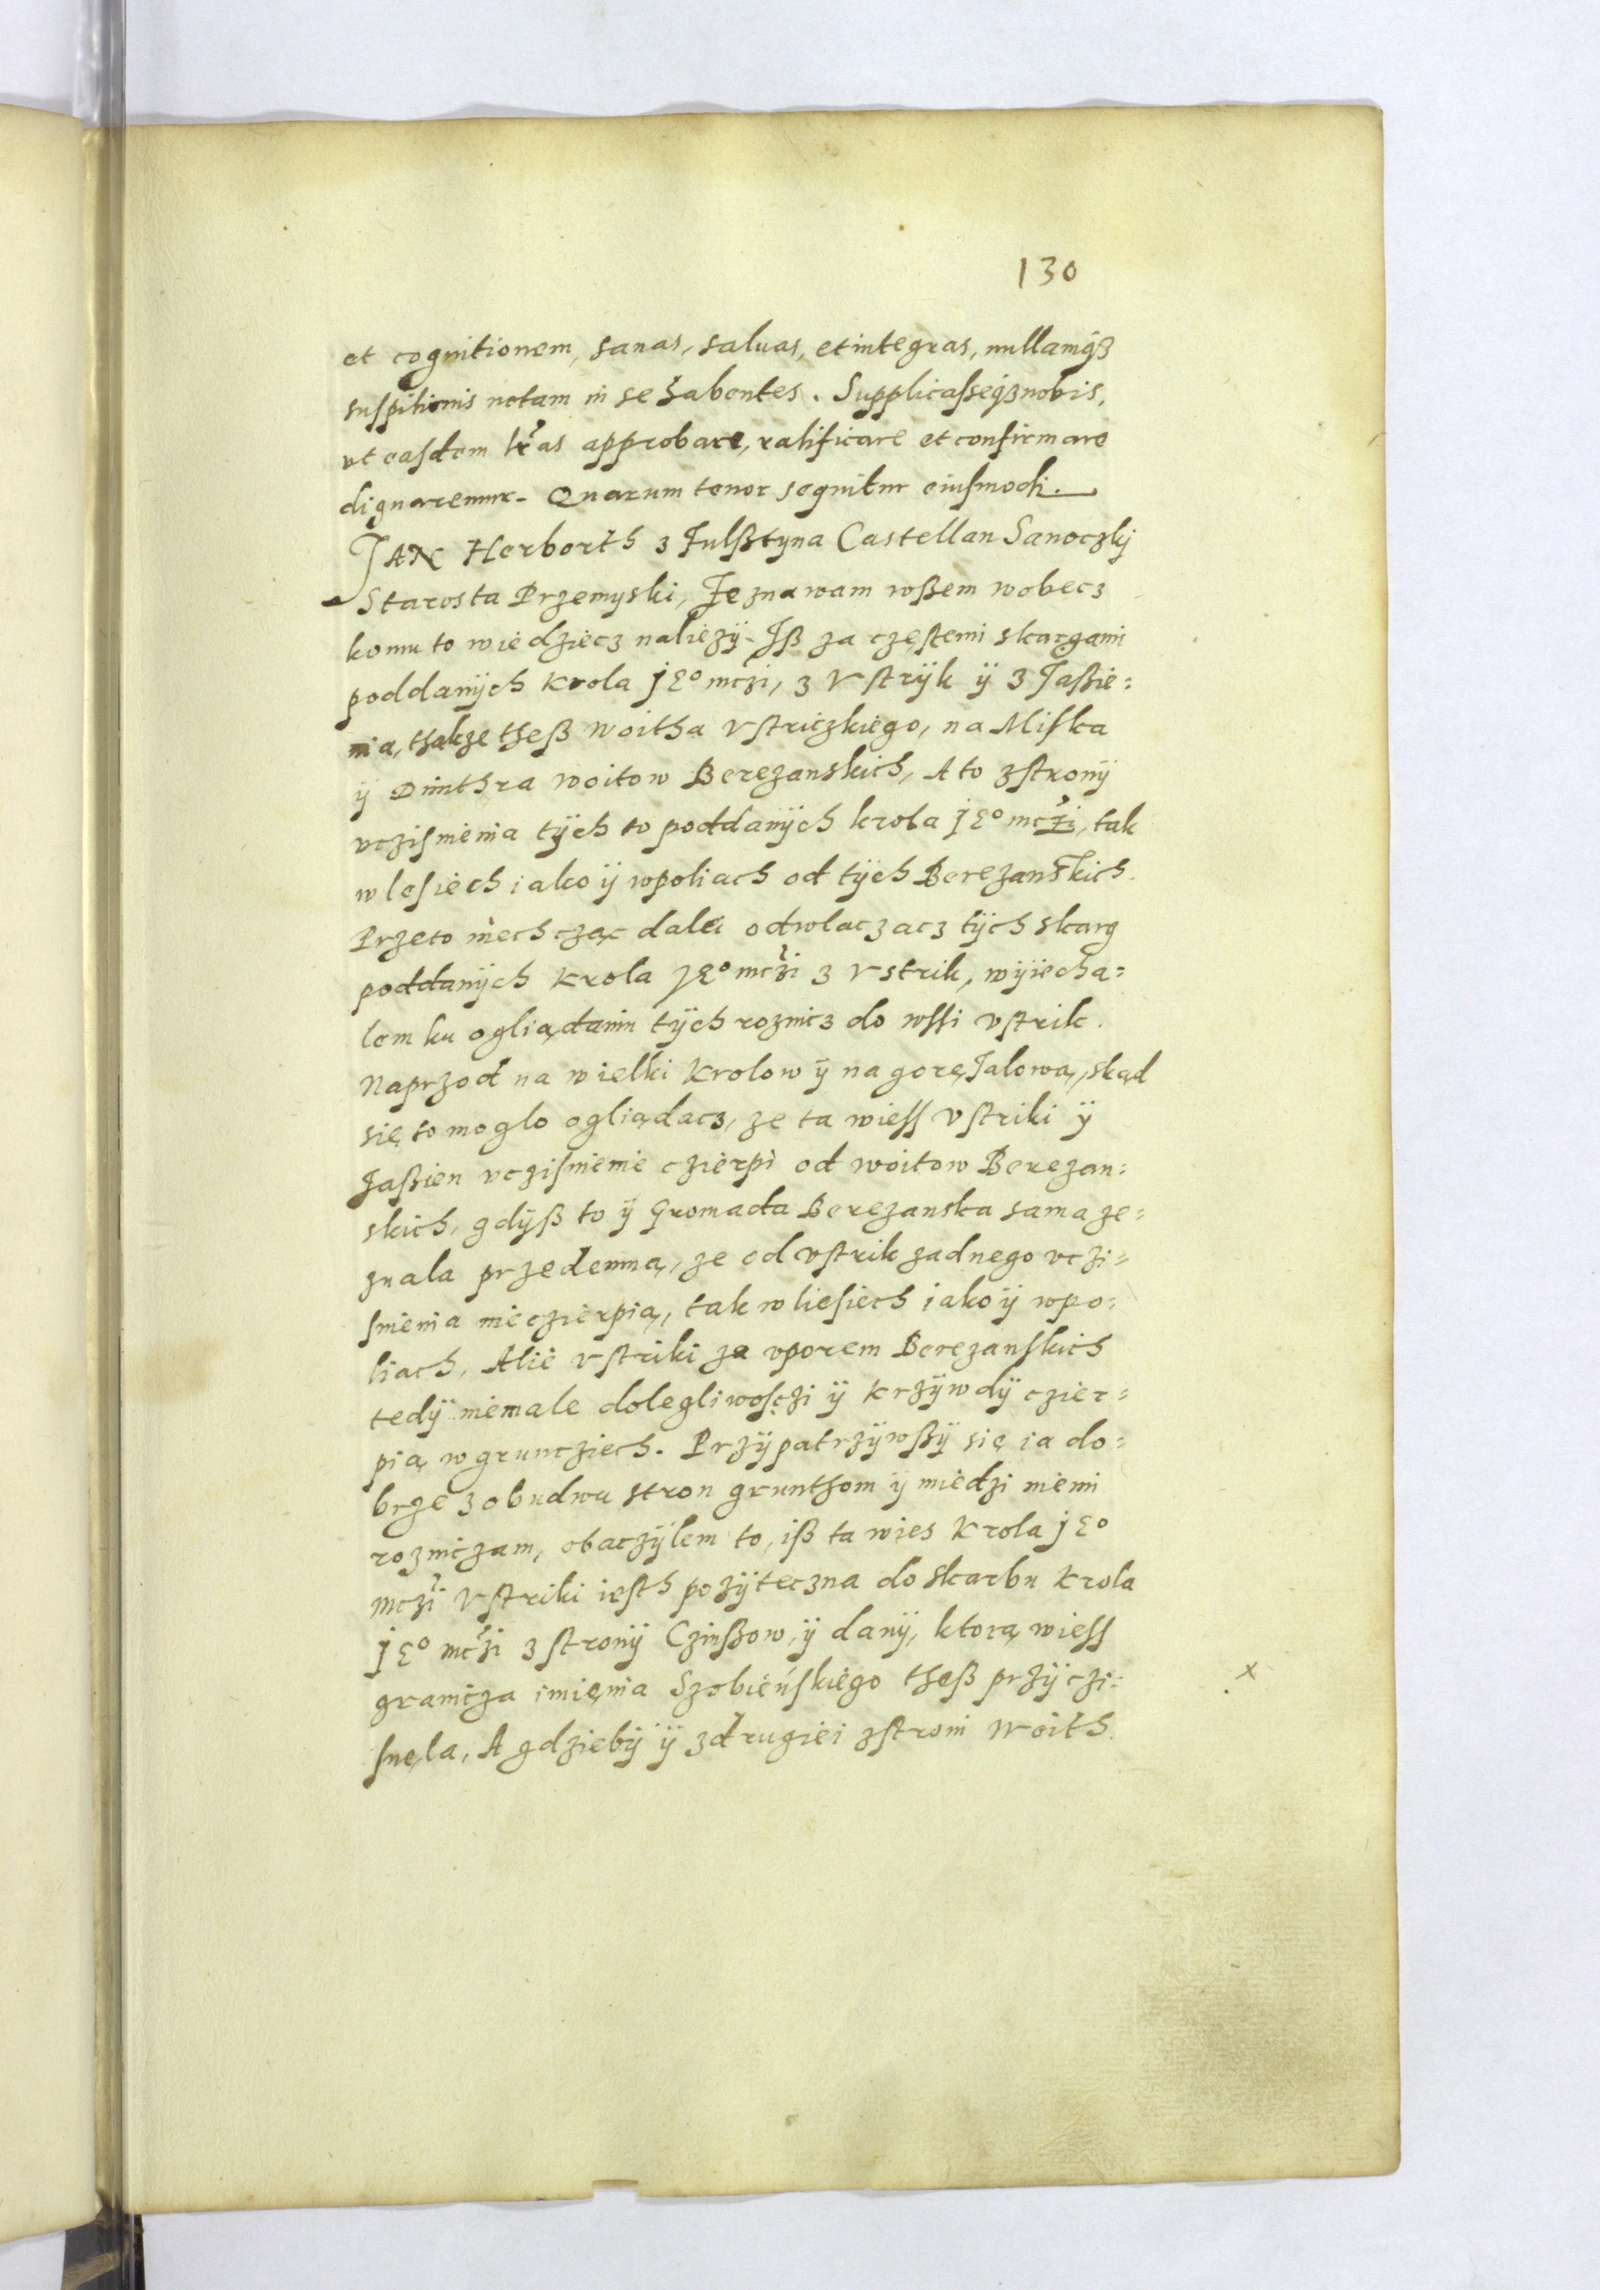 130
et cognitionem, sanas, saluas, et integras, nullamqȝ
suspitionis notam in se habentes. Supplicasseqȝ nobis,
vt easdem lr̃as approbare, ratificare et confirmare
dignaremur. Quarum tenor sequitur eiusmodi.
JAN Herborth z Fulßtyna Castellan Sanoczky
Starosta Przemyski, Zeznawam wßem wobecz
komu to wiedziecz naliezÿ. Jß za częstemi skargami
poddanÿch Krola JEo mczi, z Vstrÿk ÿ z Jaßie=
nia, thakze theß Woitha Vstriczkiego, na Miska
ÿ Dmithra woitow Berezanskich, A to zstronÿ
vczisnienia tÿch to poddanÿch krola JEo mczi, tak
w lesiech iako ÿ wpoliach od tÿch Berezanskich.
Przeto niechcząc dalei odwlaczacz tÿch skarg
poddanÿch Krola JEo mczi z Vstrik, wÿiecha=
lem ku ogliądaniu tÿch roznicz do wssi vstrik.
Naprzod na wielki Krolow ÿ na gorę Jalową, skąd
się to moglo ogliądacz, ze ta wiess vstriki ÿ
Jaßien vczisnienie czierpi od woitow Berezan=
skich, gdÿß to ÿ Gromada Berezanska sama ze=
znala przedemną, ze od vstrik zadnego vczi=
snienia nieczierpią, tak w liesiech iako ÿ wpo=
liach, Alie vstriki za vporem Berezanskich
tedÿ niemale dolegliwosczi ÿ krzÿwdÿ czier=
pią w grunczиech. Przÿpatrzÿwßÿ się ia do=
brze z obudwu stron grunthom ÿ miedzi niemi
rozniczam, obaczÿlem to, iß ta wies Krola JEo
mczi Vstriki iesth pozÿteczna do skarbu Krola
JEo mczi z stronÿ Czinßow, ÿ danÿ, ktorą wiess
granicza imięnia Szobieńskiego theß przÿczi=
snęla, A gdziebÿ ÿ zdrugiei zstroni Woith
x